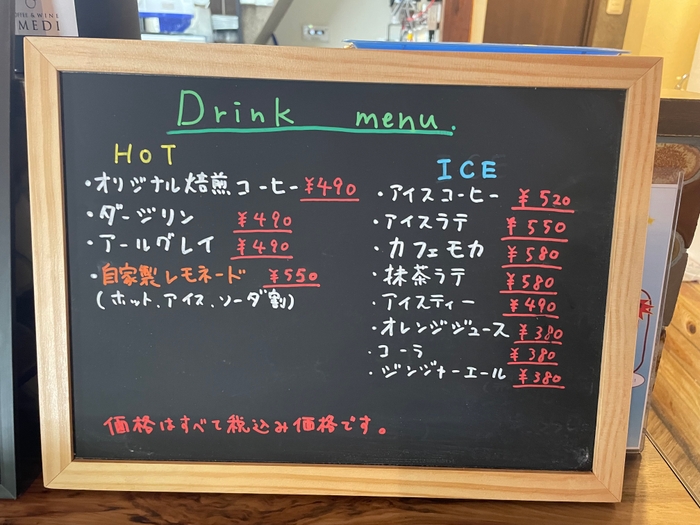 COFFEE & WINE
MEDI
Drink menu.
HOT
・オリジナル焙煎コーヒー ¥490
・ダージリン ¥490
・アールグレイ ¥490
・自家製レモネード ¥550
(ホット、アイス、ソーダ割)
ICE
・アイスコーヒー ¥520
・アイスラテ ¥550
・カフェモカ ¥580
・抹茶ラテ ¥580
・アイスティー ¥490
・オレンジジュース ¥380
・コーラ ¥380
・ジンジャーエール ¥380
価格はすべて税込み価格です。